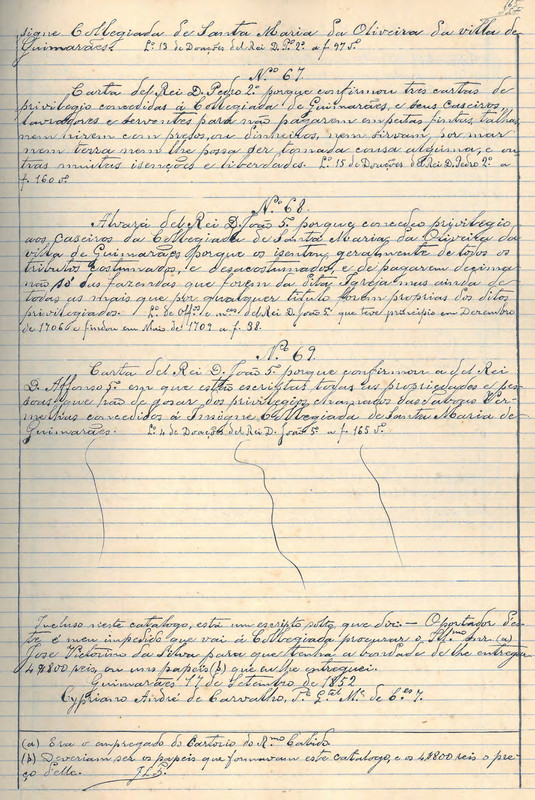 signe Collegiada de Santa Maria da Oliveira da villa de
Guimarães. L.º 13 de Doações del Rei D. P.º 2.º a f. 97 vº.
N.º 67.
Carta del Rei D. Pedro 2.º porque confirmou tres cartas de
privilegio concedidas á Collegiada de Guimarães, e seus caseiros,
lavradores e serventes para não pagarem em peitas, fintas, talhas,
nem hirem com presos, ou dinheiros, nem sirvam por mar
nem terra nem lhe possa ser tomada cousa alguma, e ou
tras muitas isenções e liberdades. L.º 15 de Doações del Rei D. Pedro 2.º a
f. 160 vº.
N.º 68.
Alvará del Rei D. João 5.º porque concedeo privilegio
aos caseiros da Collegiada de Santa Maria da Oliveira da
villa de Guimarães porque os isentou geralmente de todos os
tributos costumados, e desacostumados, e de pagarem decima
não só das fazendas que forem da dita Igreja mas ainda de
todas as mais que por qualquer titulo forem proprias dos ditos
privilegiados. L.º de Off.os e m.ces del Rei D. João 5.º que teve principio em Dezembro
de 1706 e findou em Maio de 1709 a f. 38.
N.º 69.
Carta del Rei D. João 5.º porque confirmou a del Rei
D. Affonso 5.º em que estão escriptas todas as propriedades e pes-
soas que hão de gosar dos privilegios chamados das Taboas Ver-
melhas concedidos á Insigne Collegiada de Santa Maria de
Guimarães. L.º 4 de Doações del Rei D. João 5.º a f. 165 vº.
Incluso neste catalogo, está um escripto solto, que diz: — O portador des-
te é meu impedido que vai á Collegiada procurar o Ill.mo Snr. (a)
José Victorino da Silva para que tenha a bondade de lhe entregar
4$800 reis, ou uns papeis (b) que eu lhe entreguei.
Guimarães 17 de Setembro de 1852
Cypriano André de Carvalho, T.e G.tel M.e de C.es 7.
(a) Era o empregado do Cartorio do R.mo Cabido
(b) Deveriam ser os papeis que formavam este catalogo, e os 4$800 reis o pre-
ço d'elle. J.L.F.